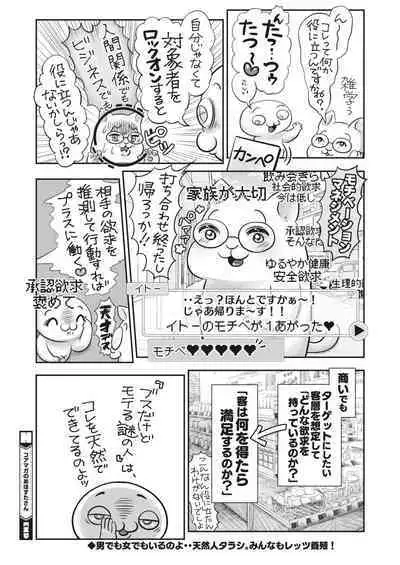 ん〜
コレって何か
役に立つんですかね?
雑学?
だっ…つぅ
たっ〜
カンペ
自分じゃなくて
対象者を
ロックオンすると
人間関係でも
ビジネスでも
役に立つんじゃあ
ないかしらっ??
モチベーション
マネジメント
飲み会きらい
社会的欲求
今は低し
家族が大切
打ち合わせ終ったし
帰ろっか!!
承認欲求
そんな
ゆるやか健康
安全欲求
生理的
イトー
‥えっ?ほんとですかぁ〜!
じゃあ帰りま〜す!
イトーのモチベが1あがった♥
モチベ♥♥♥♥♥
相手の欲求を
推測して行動すれば
プラスに動く
承認欲求
褒めて
天才デス
商いでも
ターゲットにしたい
客層を想定して
「どんな欲求を
持っているのか?」
「客は何を得たら
満足するのか?」
「ブスだけど
モテる謎の人」は、
コレを天然で
できてるのよッ
◆男でも女でもいるのよ‥天然人タラシ。みんなもレッツ養殖!